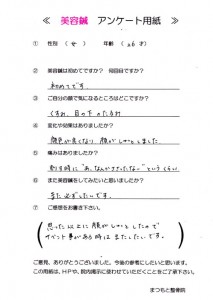 ≪ 美容鍼 アンケート用紙 ≫
① 性別 （ 女 ） 年齢 （ 26 才）
② 美容鍼は初めてですか？ 何回目ですか？
初めてです。
③ ご自分の顔で気になるところはどこですか？
くすみ、目の下のたるみ
④ 変化や効果はありましたか？
顔色が良くなり、顔がしゅっとしました。
⑤ 痛みはありましたか？
刺す時に"あ、なんかささったな〜"というくらい。
⑥ また美容鍼をしてみたいと思いましたか？
また必ずしたいです。
⑦ ご感想をお書き下さい。
思った以上に顔がしゅっとしたので
イベント事がある時はまたしたいです。
ご意見、ありがとうございました。今後の参考にしたいと思います。
この用紙は、HPや、院内掲示に使わせていただくことをご了承下さい。
まつもと整骨院